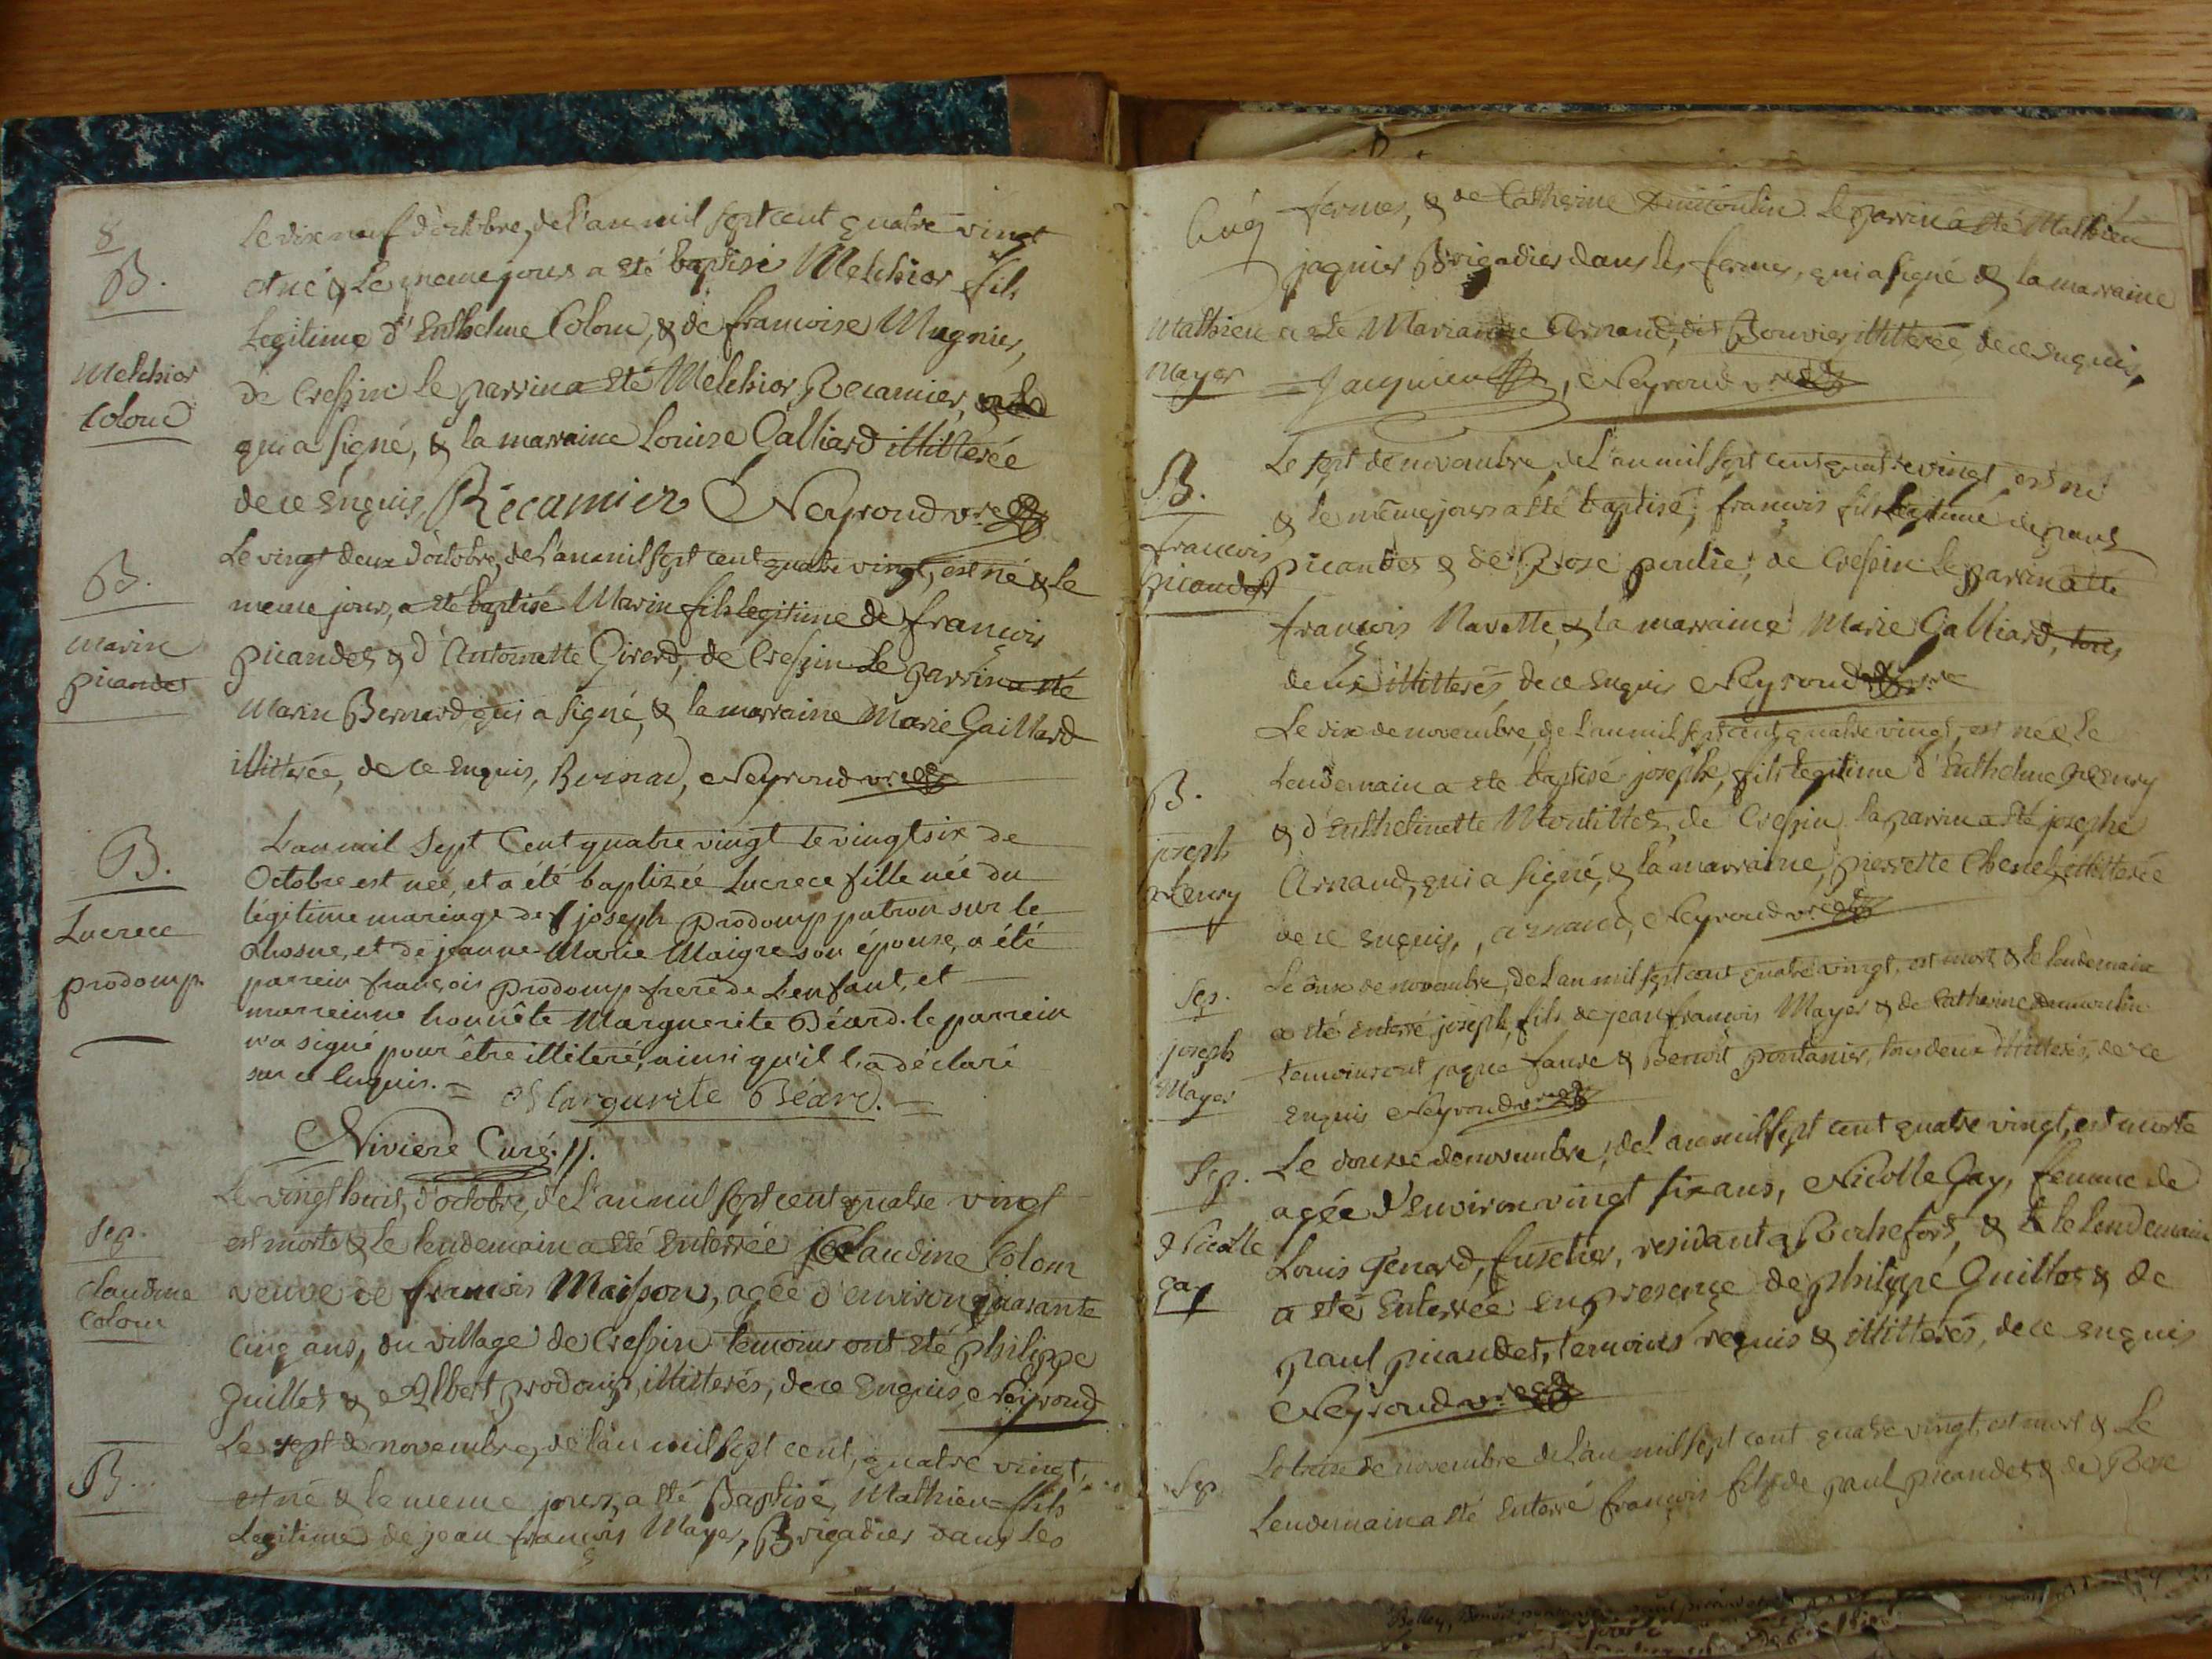 8
B.
Melchior
Colomb
Le dix neuf d'octobre, de l'an mil sept cent quatre vingt
est né & le meme jour a eté baptisé Melchior fils
Legitime d'Enthelme Colom, & de francoise Mugnier,
de Crespin le parrin a eté Melchior Recamier,
qui a signé, & la marraine Louise Calliard illitterée
de ce enquis, Récamier Neyroud vre
B.
marin
picandet
Le vingt deux d'octobre, de l'an mil sept cent quatre vingt, est né & le
meme jour, a eté baptisé Marin fils legitime de francois
picandet & d'Antoinette Girerd, de Crespin Le parrin a eté
Marin Bernard qui a signé, & la marraine Marie Gaillard
illitterée, de ce enquis, Bernard, Neyroud vre
B.
Lucrece
prodomp.
L'an mil Sept Cent quatre vingt le vingt six de
Octobre est née, et a été baptizée Lucrece fille née du
légitime mariage de joseph prodomp patron sur le
Rhosne, et de jeanne-Marie Maigre son épouse, a été
parrein françois prodomp frere de L'enfant, et
marreinne honnête Marguerite Béard. le parrein
n'a signé pour être illiteré, ainsi qu'il l'a déclaré
sur ce Enquis. = Marguerite Béard. =
Niviere Curé.
Sep.
claudine
Colom
Le vingt huit, d'octobre, de L'an mil sept cent quatre vingt
est morte & le lendemain a eté Enterrée Claudine Colom
veuve de francois Maisson, agée d'environ quarante
cinq ans, du village de Crespin temoins ont eté philippe
Guillet & Albert prodomp, illitterés, de ce enquis, Neyroud
B.
Le sept de novembre, de l'an mil sept cent, quatre vingt,
est né & le meme jour, a eté Baptisé, Mathieu fils
Legitime de jean francois Mayer, Brigadier dans Les
Mathieu
Mayer
fermes, & de Catherine Dumoulin. Le parrin a eté Mathieu
jaquier Brigadier dans les fermes, qui a signé & la marraine
a eté Marianne Arnaud, dit Bouvier, illitterée, de ce enquis,
Jacquier, Neyroud vre
B.
francois
picandet
Le sept de novembre, de L'an mil sept cent quatre vingt, est né
& le même jour a eté baptisé, françois fils legitime de paul
picandet & de Rose de Crespin Le parrin a eté
françois Navette, & la marraine Marie Galliard, tous
deux illitterés, de ce enquis Neyroud vre
B.
joseph
Le dix de novembre, de l'an mil sept cent quatre vingt, est né & Le
Lendemain a eté baptisé joseph, fils legitime d'Enthelme
& d'Enthelmette Montillet, de Crespin le parrin a eté joseph
Arnaud, qui a signé, & la marraine, pierrette illitterée
de ce enquis, arnaud, Neyroud vre
Sep.
joseph
Mayer
Le onze de novembre, de L'an mil sept cent quatre vingt, est mort & le lendemain
a eté enterré joseph, fils de jean francois Mayer & de Catherine Dumoulin
temoins ont jaque faure & Benoit pontanier, tous deux illitterés, de ce
enquis Neyroud vre
Sep.
Nicolle
gay
Le douze de novembre, de L'an mil sept cent quatre vingt, est morte
agée d'environ vingt six ans, Nicolle Gay, femme de
Louis Genard, fuselier, residant a Rochefort, & le lendemain
a eté Enterrée en presence de philippe Guillet & de
paul picandet, temoins requis & illitterés, de ce enquis
Neyroud vre
Sep.
Le treize de novembre de L'an mil sept cent quatre vingt, est mort & Le
Lendemain a eté Enterré françois fils de paul picandet & de Rose